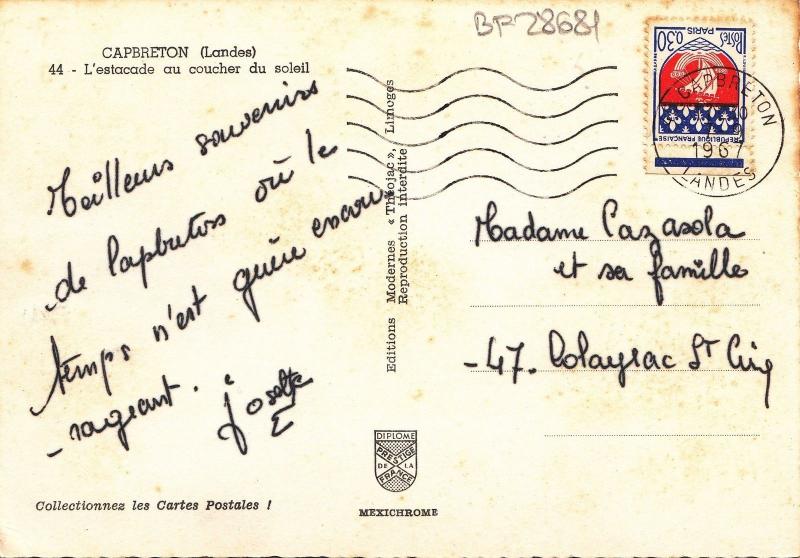 BF 28681
CAPBRETON (Landes)
44 - L'estacade au coucher du soleil
Meilleurs souvenirs
de Capbreton où le
temps n'est guère encou
-rageant.
Josette
Editions Modernes « Théojac », Limoges
Reproduction interdite
POSTES
0,30
PARIS
REPUBLIQUE FRANÇAISE
CAPBRETON
1967
LANDES
Madame Cazasola
et sa famille
-47. Colayrac St Cirq
DIPLOME
PRESTIGE
DE LA
FRANCE
MEXICHROME
Collectionnez les Cartes Postales !